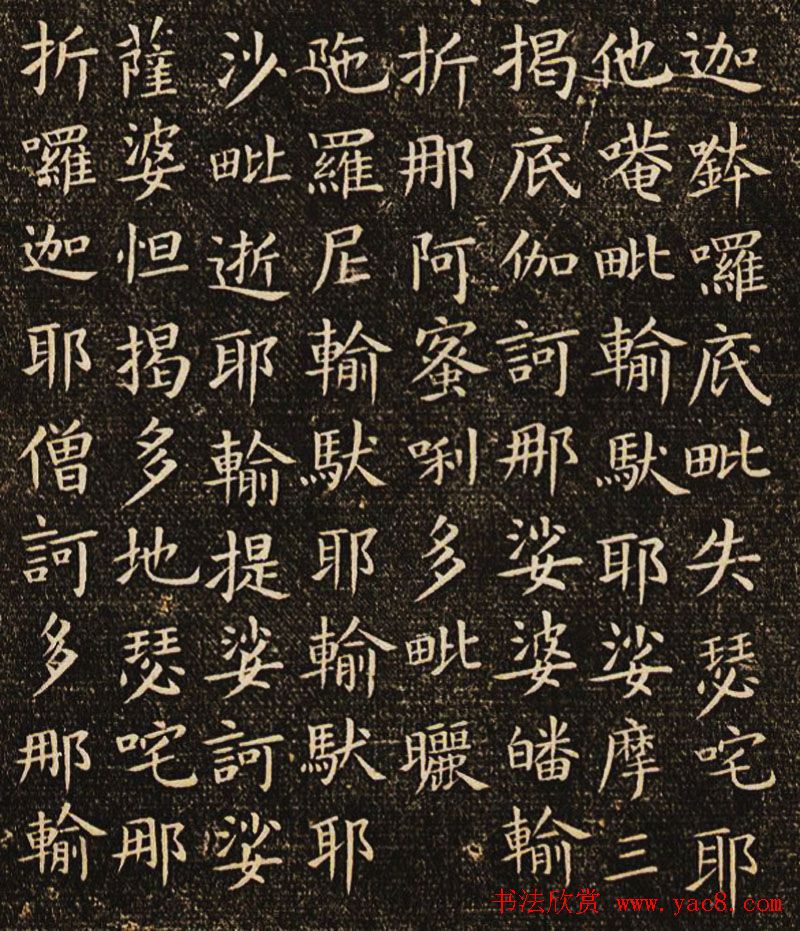 迦鉢囉底毗失瑟咤耶
他唵毗輸馱耶娑摩三
揭底伽訶那娑婆皤輸
折那阿蜜唎多毗曬
陁羅尼輸馱耶輸馱耶
沙毗逝耶輸提娑訶娑
薩婆怛揭多地瑟咤那
折囉迦耶僧訶多那輸
书法欣赏 www.yac8.com